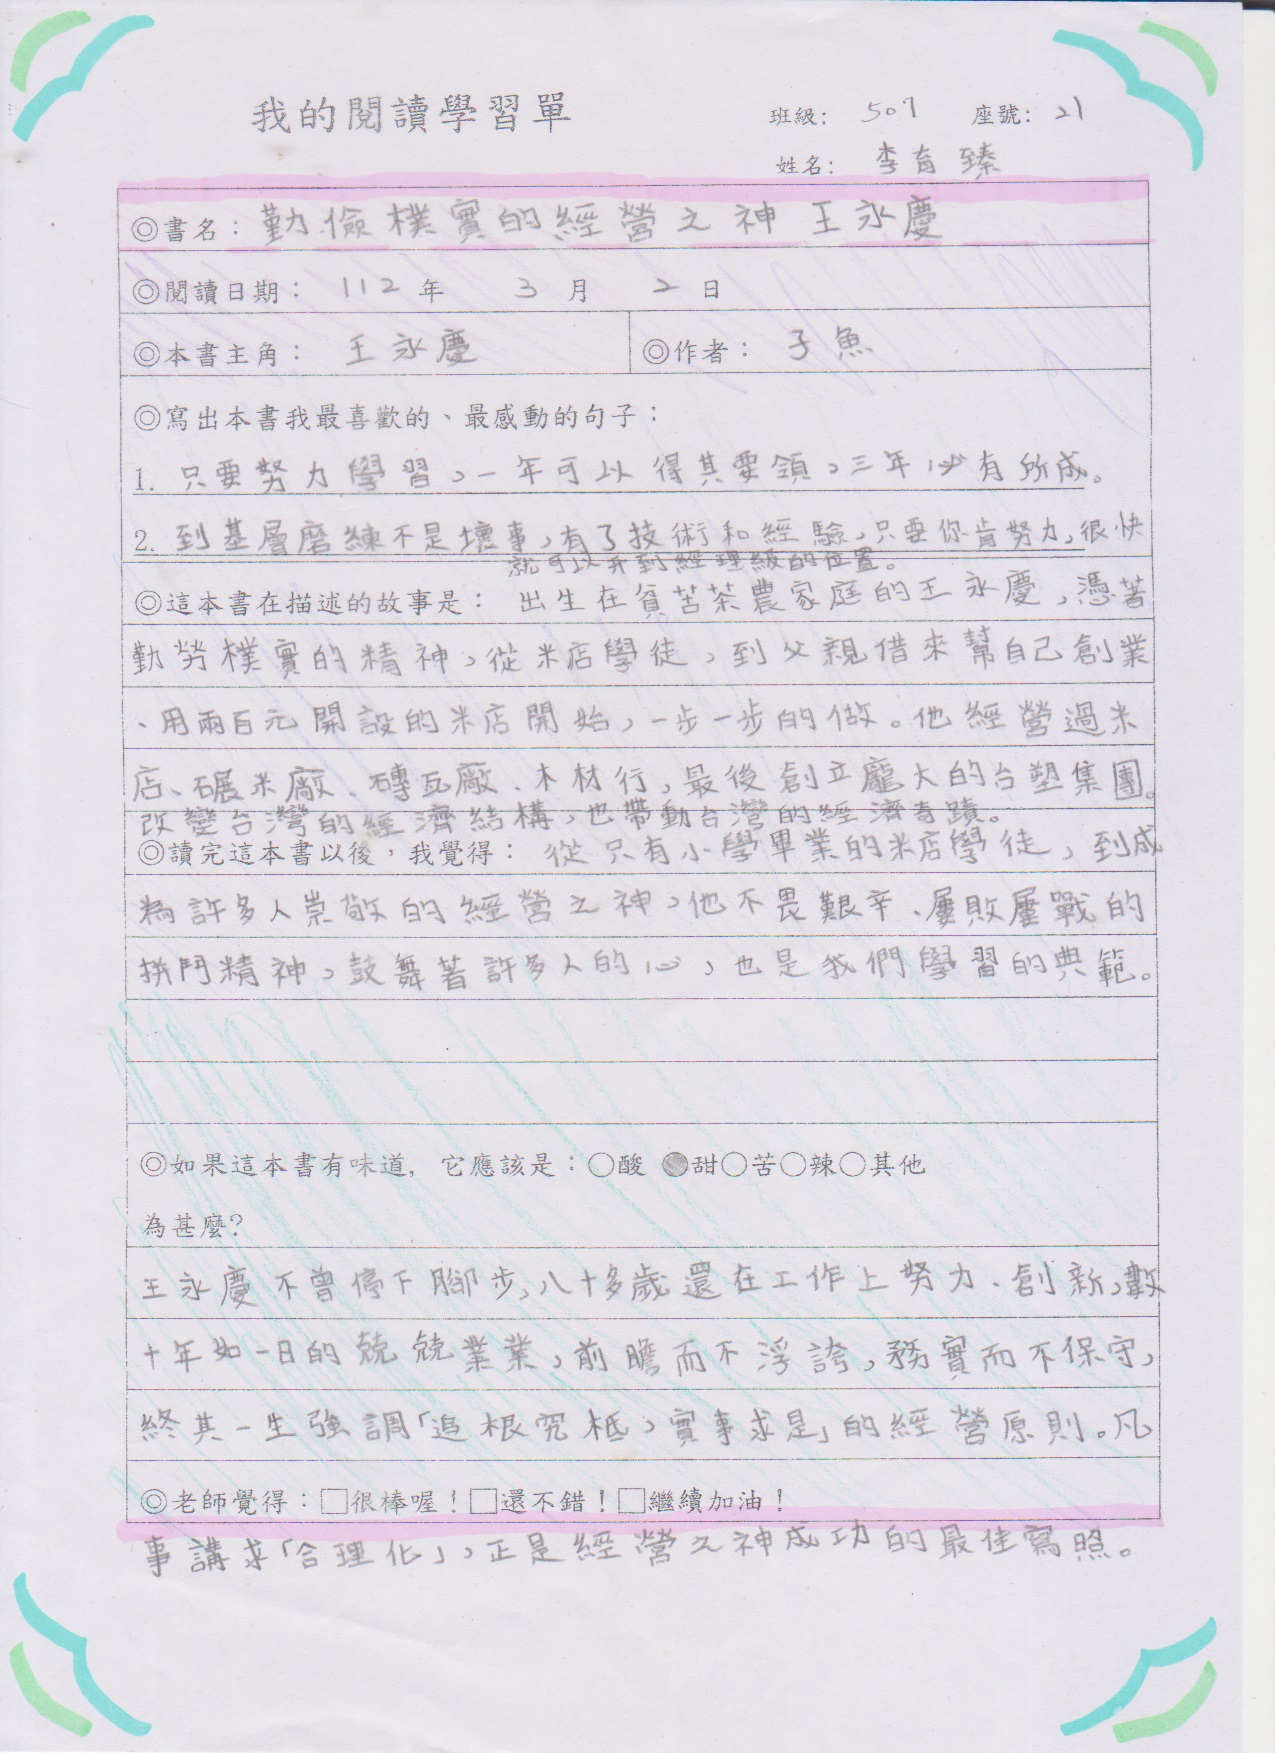 我的閱讀學習單
班級： 507 座號： 21
姓名： 李育臻
◎書名： 勤儉樸實的經營之神 王永慶
◎閱讀日期： 112 年 3 月 2 日
◎本書主角： 王永慶 ◎作者： 子魚
◎寫出本書我最喜歡的、最感動的句子：
1. 只要努力學習，一年可以得其要領，三年必有所成。
2. 到基層磨練不是壞事，有了技術和經驗，只要你肯努力，很快
就可以升到經理級的位置。
◎這本書在描述的故事是： 出生在貧苦茶農家庭的王永慶，憑著
勤勞樸實的精神，從米店學徒，到父親借來幫自己創業
、用兩百元開設的米店開始，一步一步的做。他經營過米
店、碾米廠、磚瓦廠、木材行，最後創立龐大的台塑集團。
改變台灣的經濟結構，也帶動台灣的經濟奇蹟。
◎讀完這本書以後，我覺得： 從只有小學畢業的米店學徒，到成
為許多人崇敬的經營之神，他不畏艱辛、屢敗屢戰的
拚鬥精神，鼓舞著許多人的心，也是我們學習的典範。
◎如果這本書有味道，它應該是：○酸 ●甜○苦○辣○其他
為甚麼?
王永慶不曾停下腳步，八十多歲還在工作上努力、創新，數
十年如一日的兢兢業業，前瞻而不浮誇，務實而不保守，
終其一生強調「追根究柢，實事求是」的經營原則。凡
◎老師覺得：□很棒喔！□還不錯！□繼續加油！
事講求「合理化」，正是經營之神成功的最佳寫照。